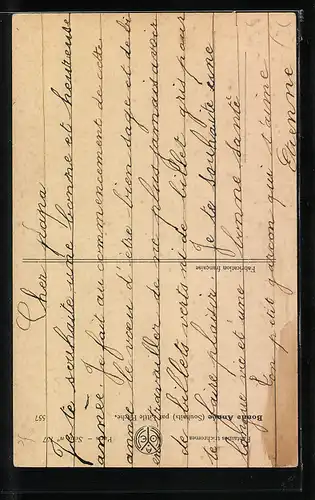 Cher papa
Je te souhaite une bonne et heureuse
année. Je fait au commencement de cette
année le vœu d'être bien sage et de bi
en travailler de ne plus jamais avoir
de billets verts ni de billet gris pour
te faire plaisir. Je te souhaite une
longue vie et une bonne santé
Ton petit garçon qui t'aime
Etienne
Fantaisies trichromes
Bonne Année (Souhaits) par Little Pêche.
Paris - Série 67
557
Fabrication française